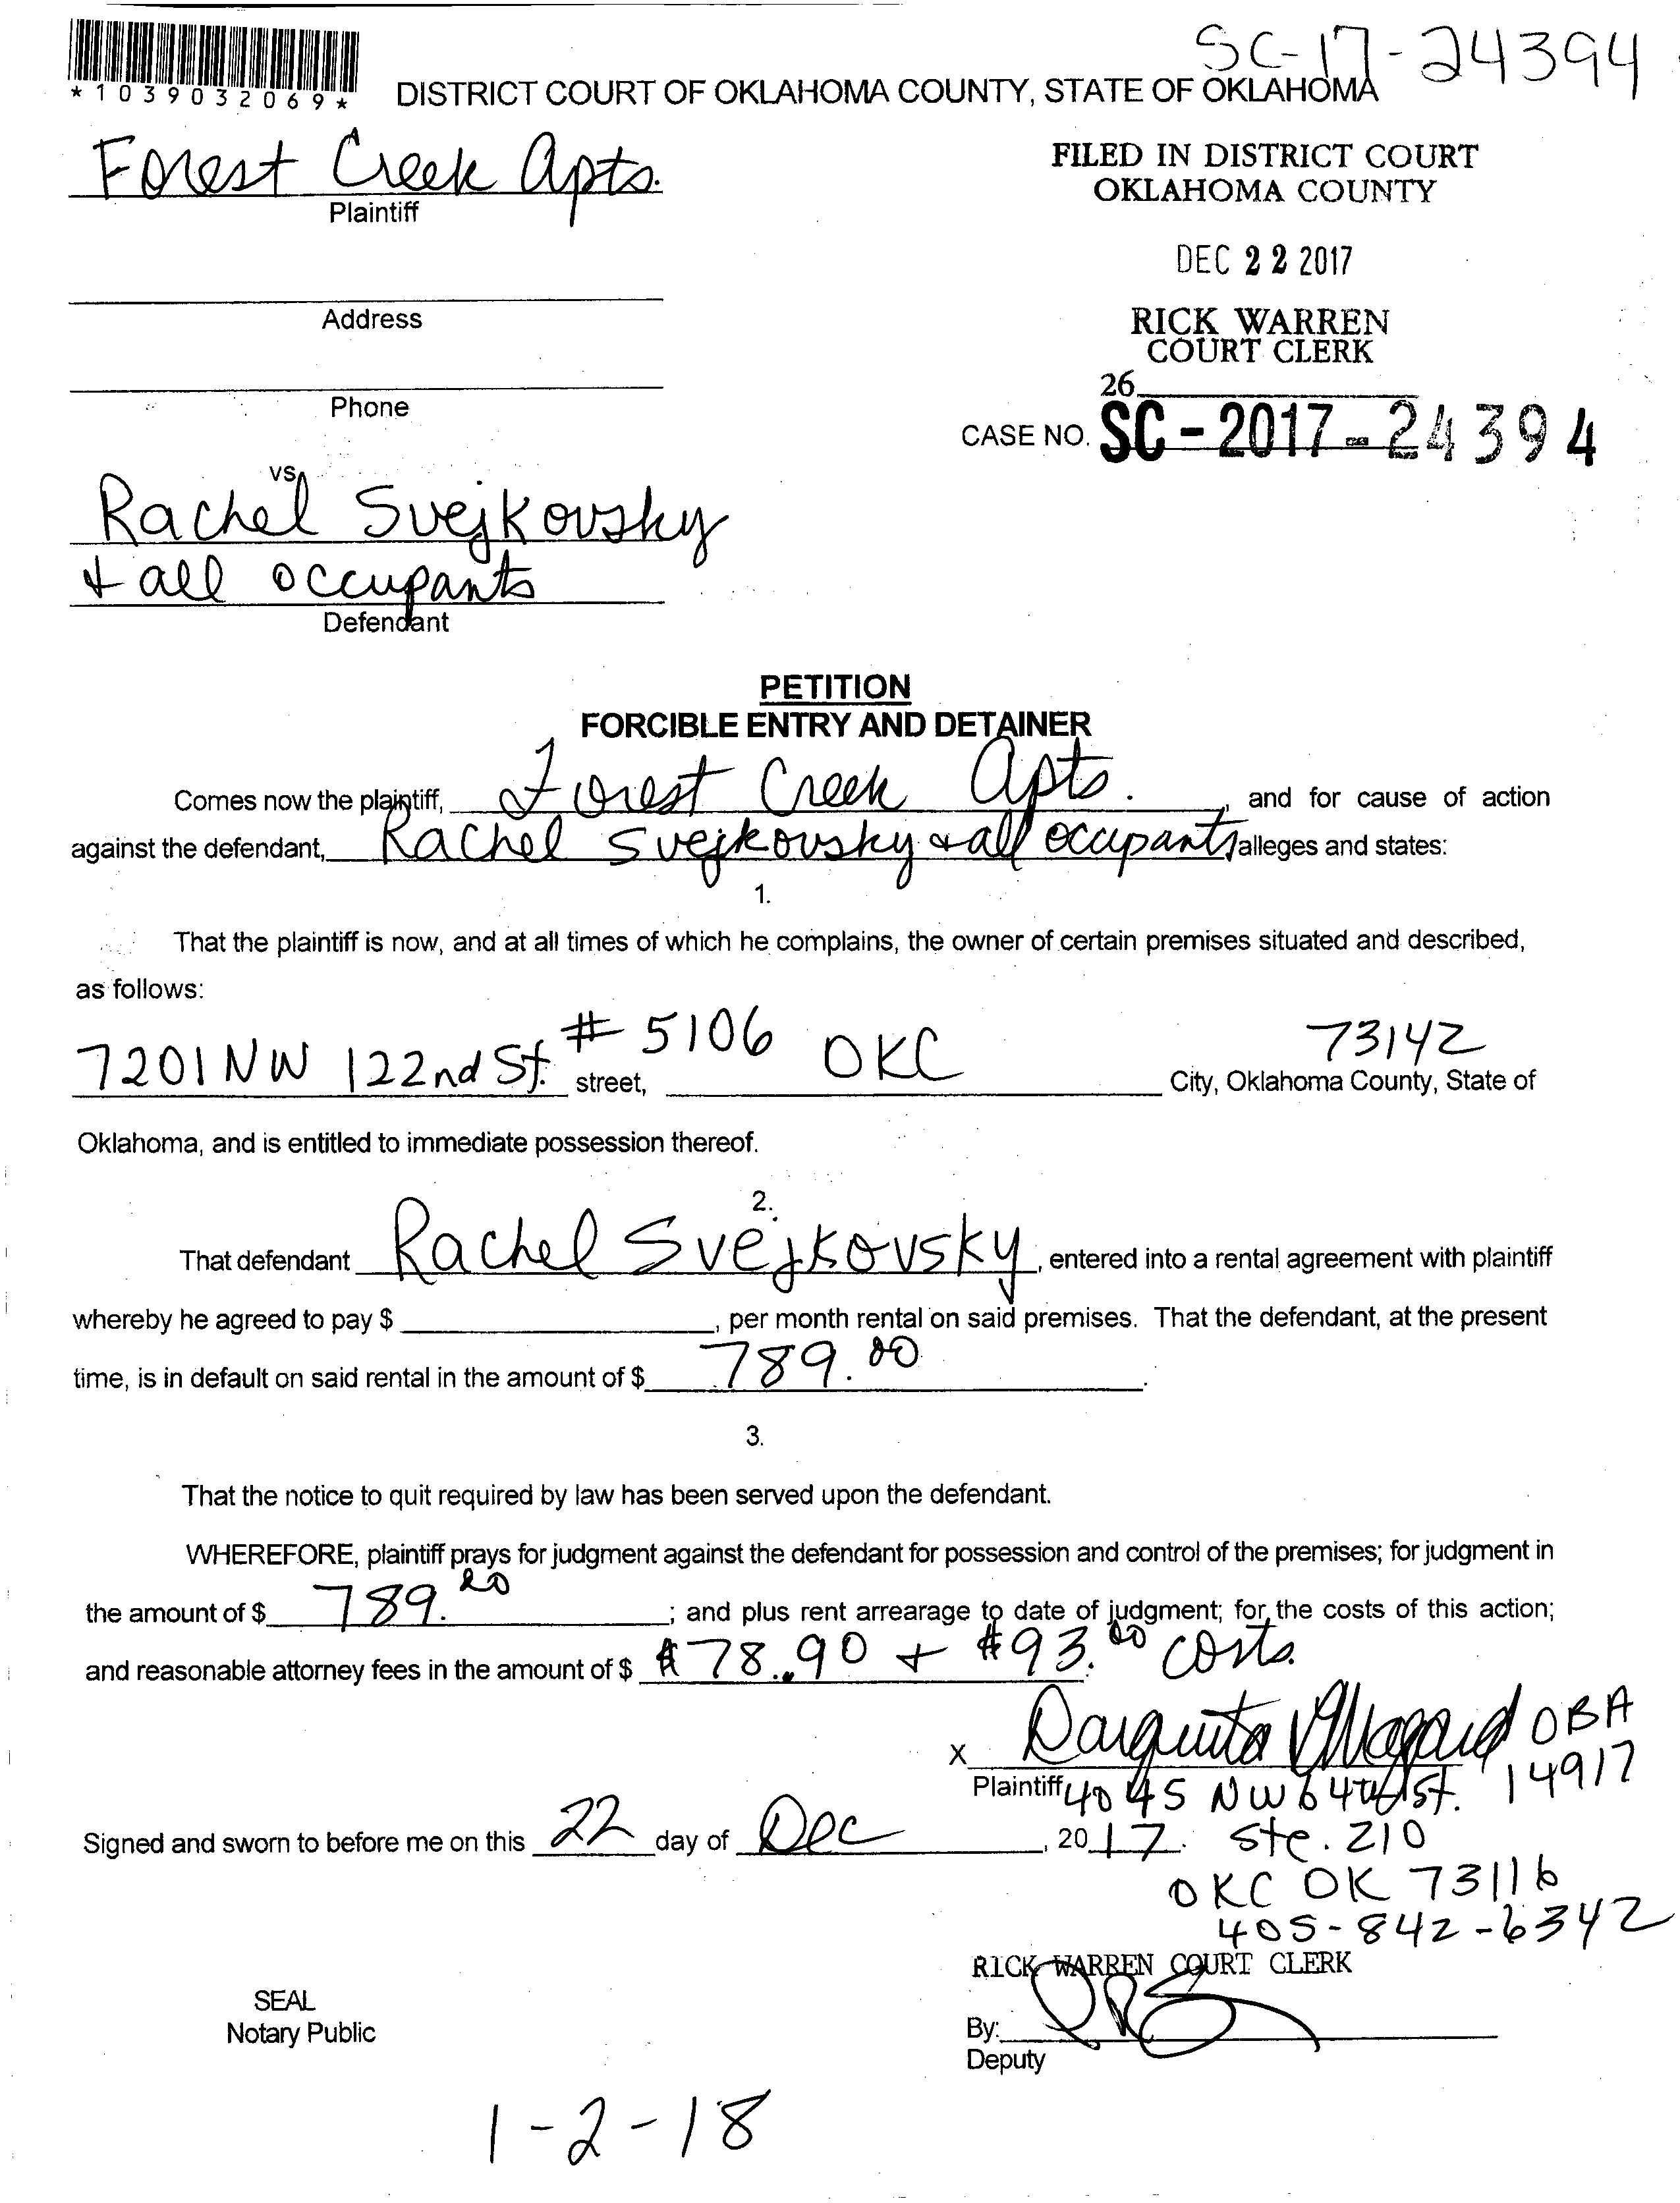 SC-17-24394
*1039032069*
DISTRICT COURT OF OKLAHOMA COUNTY, STATE OF OKLAHOMA
Forest Creek Apts.
Plaintiff
FILED IN DISTRICT COURT
OKLAHOMA COUNTY
DEC 22 2017
Address
RICK WARREN
COURT CLERK
Phone
26
CASE NO. SC-2017-24394
vs
Rachel Svejkovsky
+ all occupants
Defendant
PETITION
FORCIBLE ENTRY AND DETAINER
Comes now the plaintiff, Forest Creek Apts. , and for cause of action
against the defendant, Rachel Svejkovsky + all occupants alleges and states:
1.
That the plaintiff is now, and at all times of which he complains, the owner of certain premises situated and described,
as follows:
7201 NW 122nd St. # 5106 street, OKC 73142 City, Oklahoma County, State of
Oklahoma, and is entitled to immediate possession thereof.
2.
That defendant Rachel Svejkovsky, entered into a rental agreement with plaintiff
whereby he agreed to pay $ , per month rental on said premises. That the defendant, at the present
time, is in default on said rental in the amount of $ 789.00.
3.
That the notice to quit required by law has been served upon the defendant.
WHEREFORE, plaintiff prays for judgment against the defendant for possession and control of the premises; for judgment in
the amount of $ 789.00 ; and plus rent arrearage to date of judgment; for the costs of this action;
and reasonable attorney fees in the amount of $ $78.90 + $93.00 costs.
X OBA
Plaintiff 4045 NW 64th St. 14917
Signed and sworn to before me on this 22 day of Dec , 2017. Ste. 210
OKC OK 73116
405-842-6342
RICK WARREN COURT CLERK
SEAL
Notary Public
By:
Deputy
1-2-18